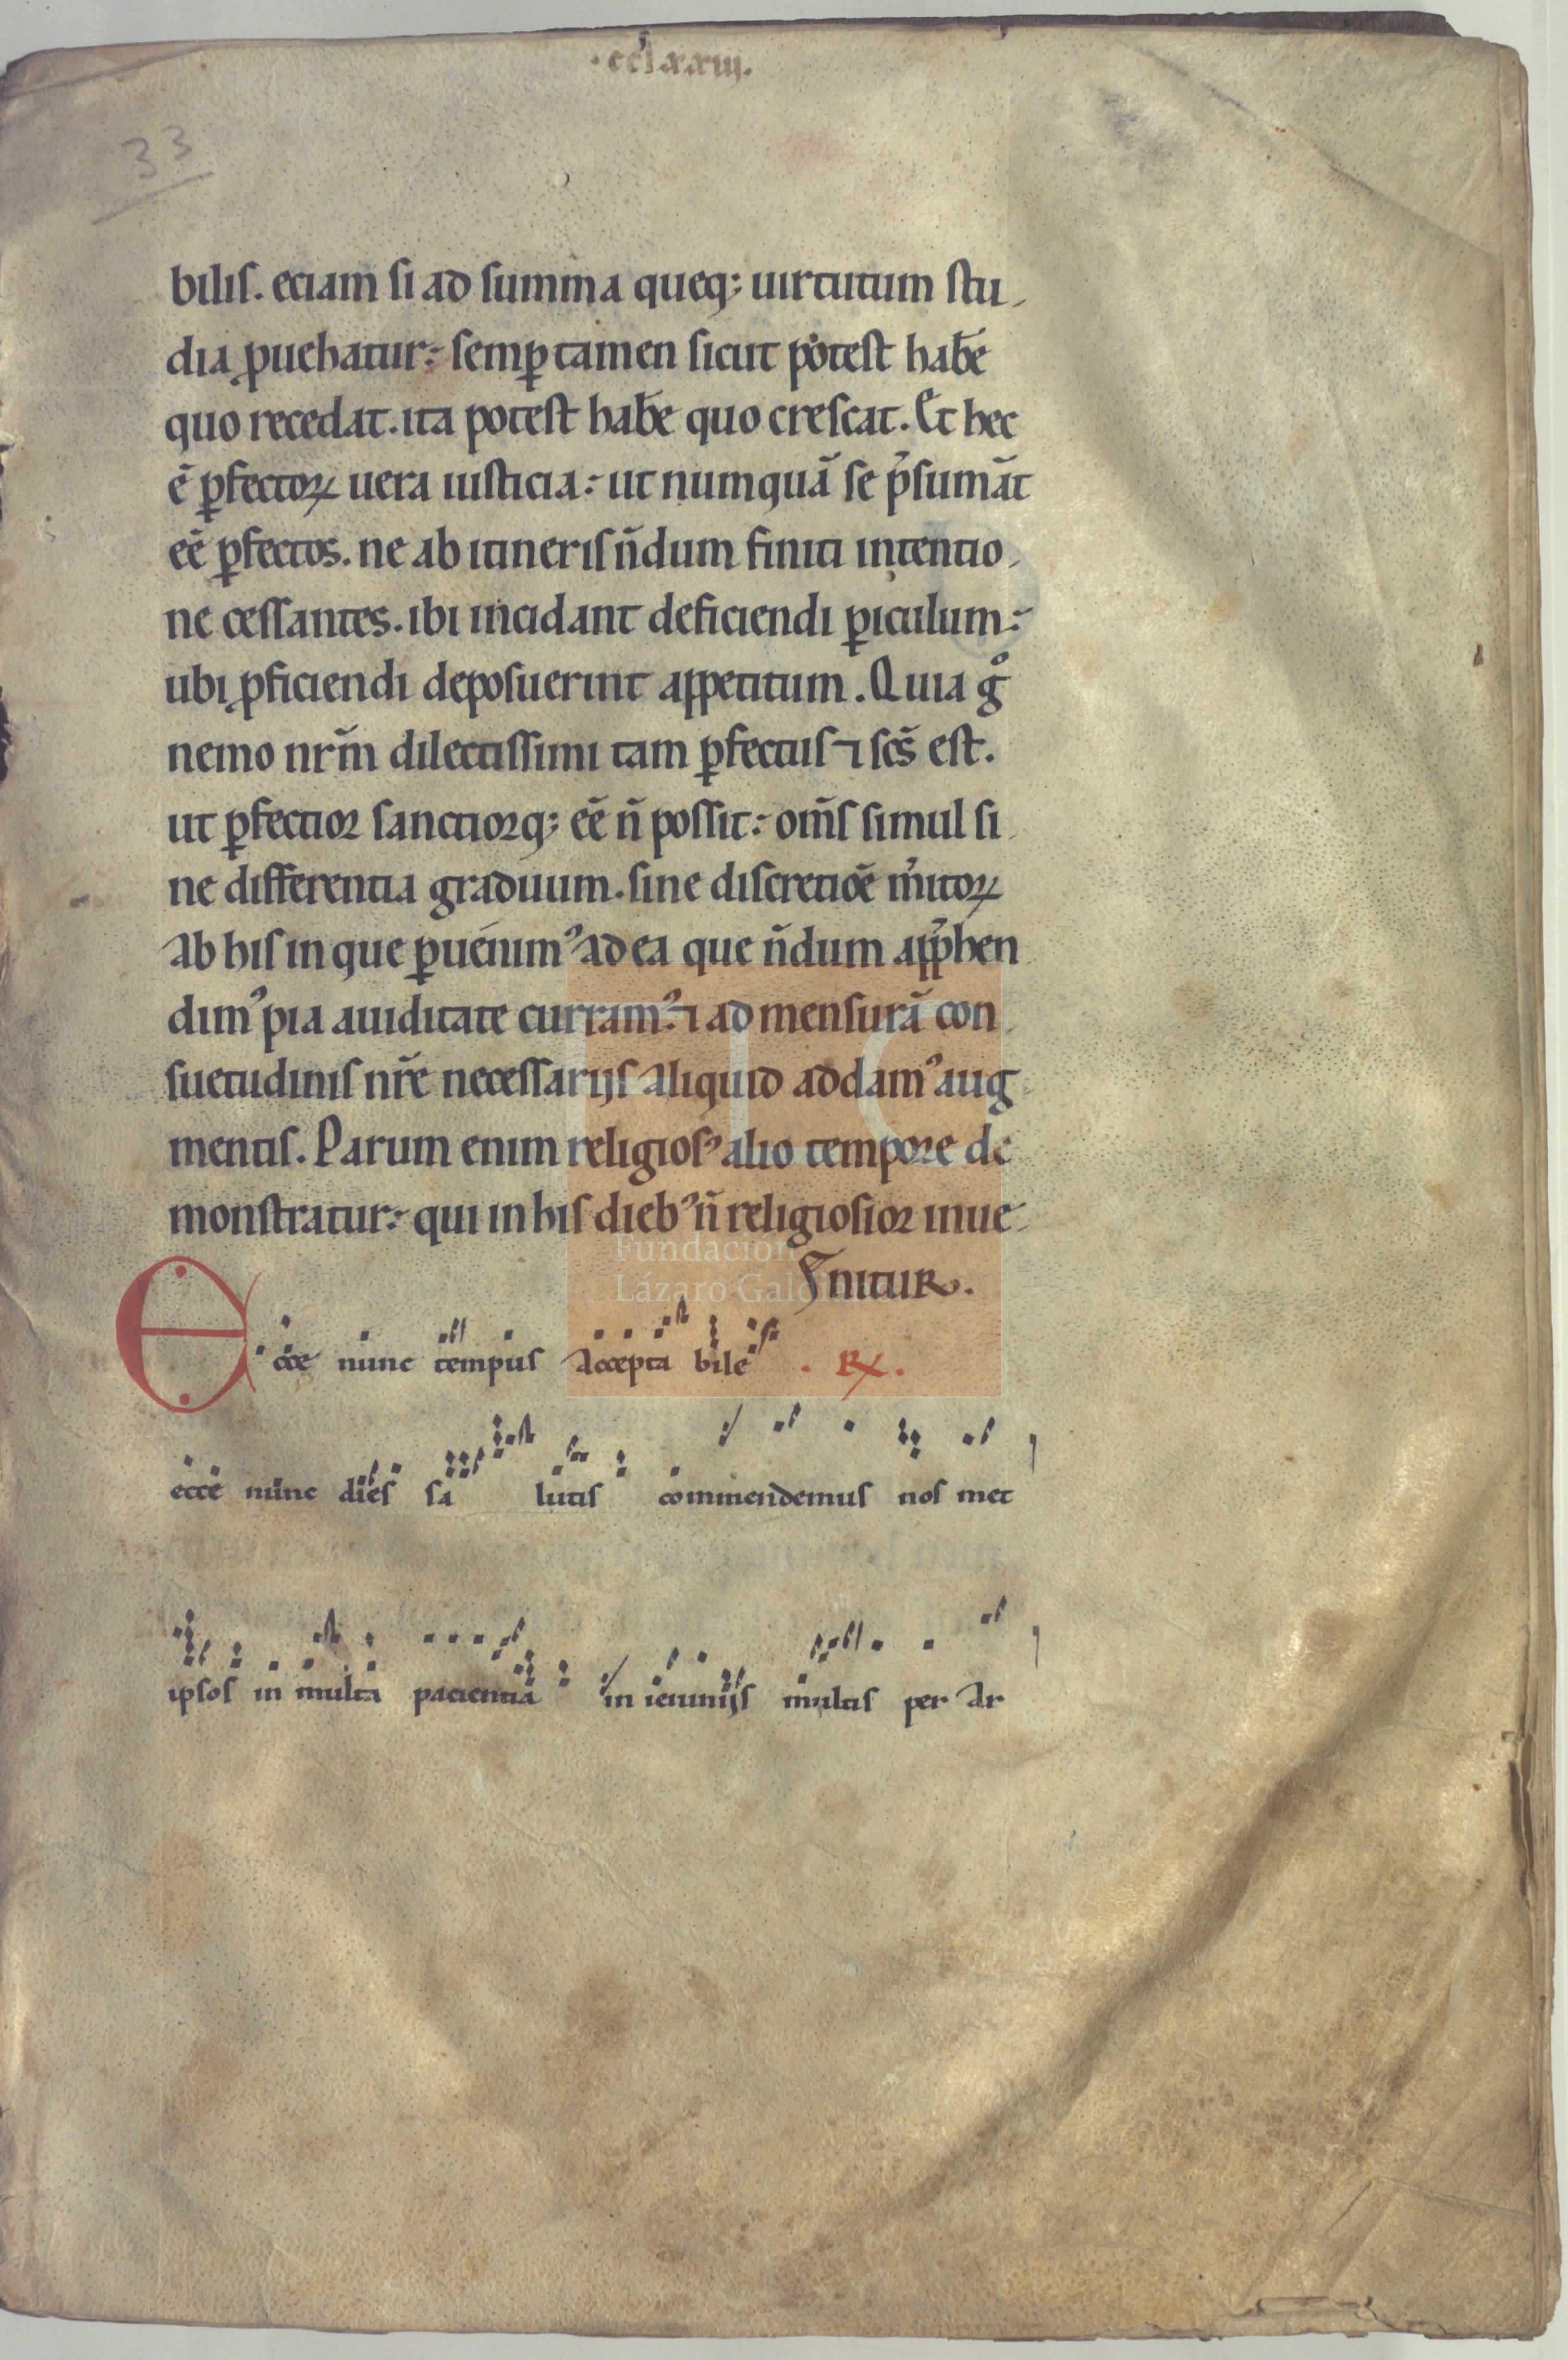 .cclxxiii.
33
bilis. eciam si ad summa queq; uirtutum stu
dia ꝓuehatur: semꝑ tamen sicut potest hab̄e
quo recedat. ita potest hab̄e quo crescat. Et hec
ē ꝑfectoꝝ uera iusticia: ut numquā se p̄sumāt
eē ꝑfectos. ne ab itineris ñdum finiti intentio
ne cessantes. ibi incidant deficiendi ꝑiculum:
ubi ꝓficiendi deposuerint appetitum. Quia gͦ
nemo nr̄m dilectissimi tam ꝑfectus ⁊ sc̄s est.
ut ꝑfectior sanctiorq; eē ñ possit: om̄s simul si
ne differentia graduum. sine discretiōe m̓itoꝝ
Ab his in que ꝑuenimꝰ ad ea que ñdum app̄hen
dimꝰ pia auiditate curramꝰ: ⁊ ad mensurā con
suetudinis nr̄e necessarijs aliquid addamꝰ aug
mentis. Parum enim religiosꝰ alio tempore de
monstratur: qui in his diebꝰ ñ religiosior inue
nitur.
Ecce nunc tempus Accepta bile . ℞.
Fundación
Lázaro Galdiano
ecce nunc dies sa lutis commendemus nos met
ipsos in multa pacientia in ieiunijs multis per Ar